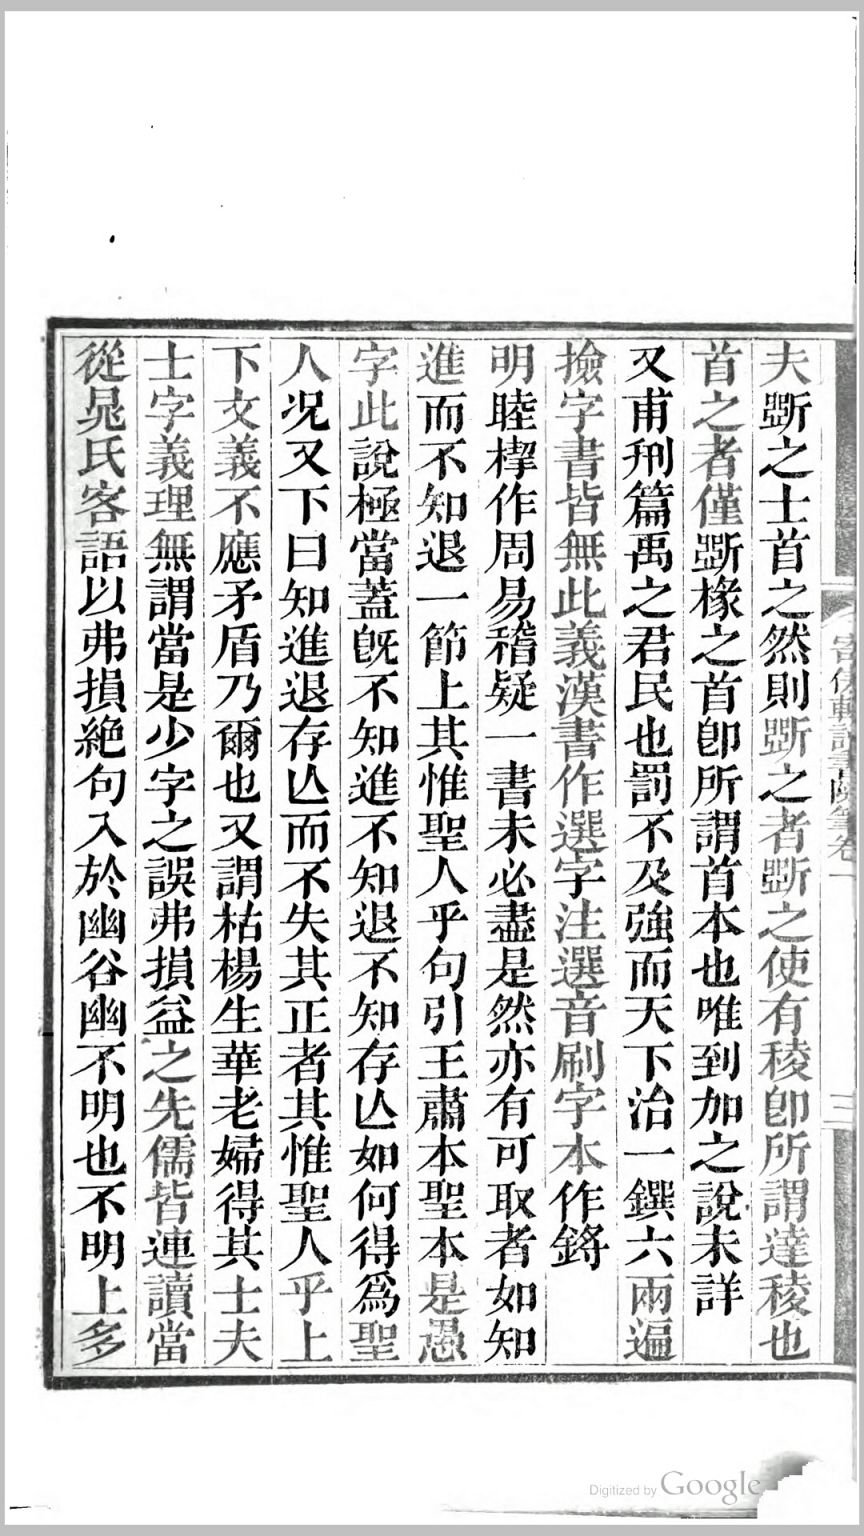 夫斵之士首之然則斵之者斵之使有稜卽所謂達稜也
首之者僅斵椽之首卽所謂首本也唯到加之說未詳
又甫刑篇禹之君民也罰不及強而天下治一鐉六兩遍
撿字書皆無此義漢書作選字注選音刷字本作鋝
明睦㮮作周易稽疑一書未必盡是然亦有可取者如知
進而不知退一節上其惟聖人乎句引王肅本聖本是愚
字此說極當蓋旣不知進不知退不知存亾如何得爲聖
人况又下曰知進退存亾而不失其正者其惟聖人乎上
下文義不應矛盾乃爾也又謂枯楊生華老婦得其士夫
士字義理無謂當是少字之誤弗損益之先儒皆連讀當
從晁氏客語以弗損絶句入於幽谷幽不明也不明上多
讀書隨筆卷一
三
Digitized by Google